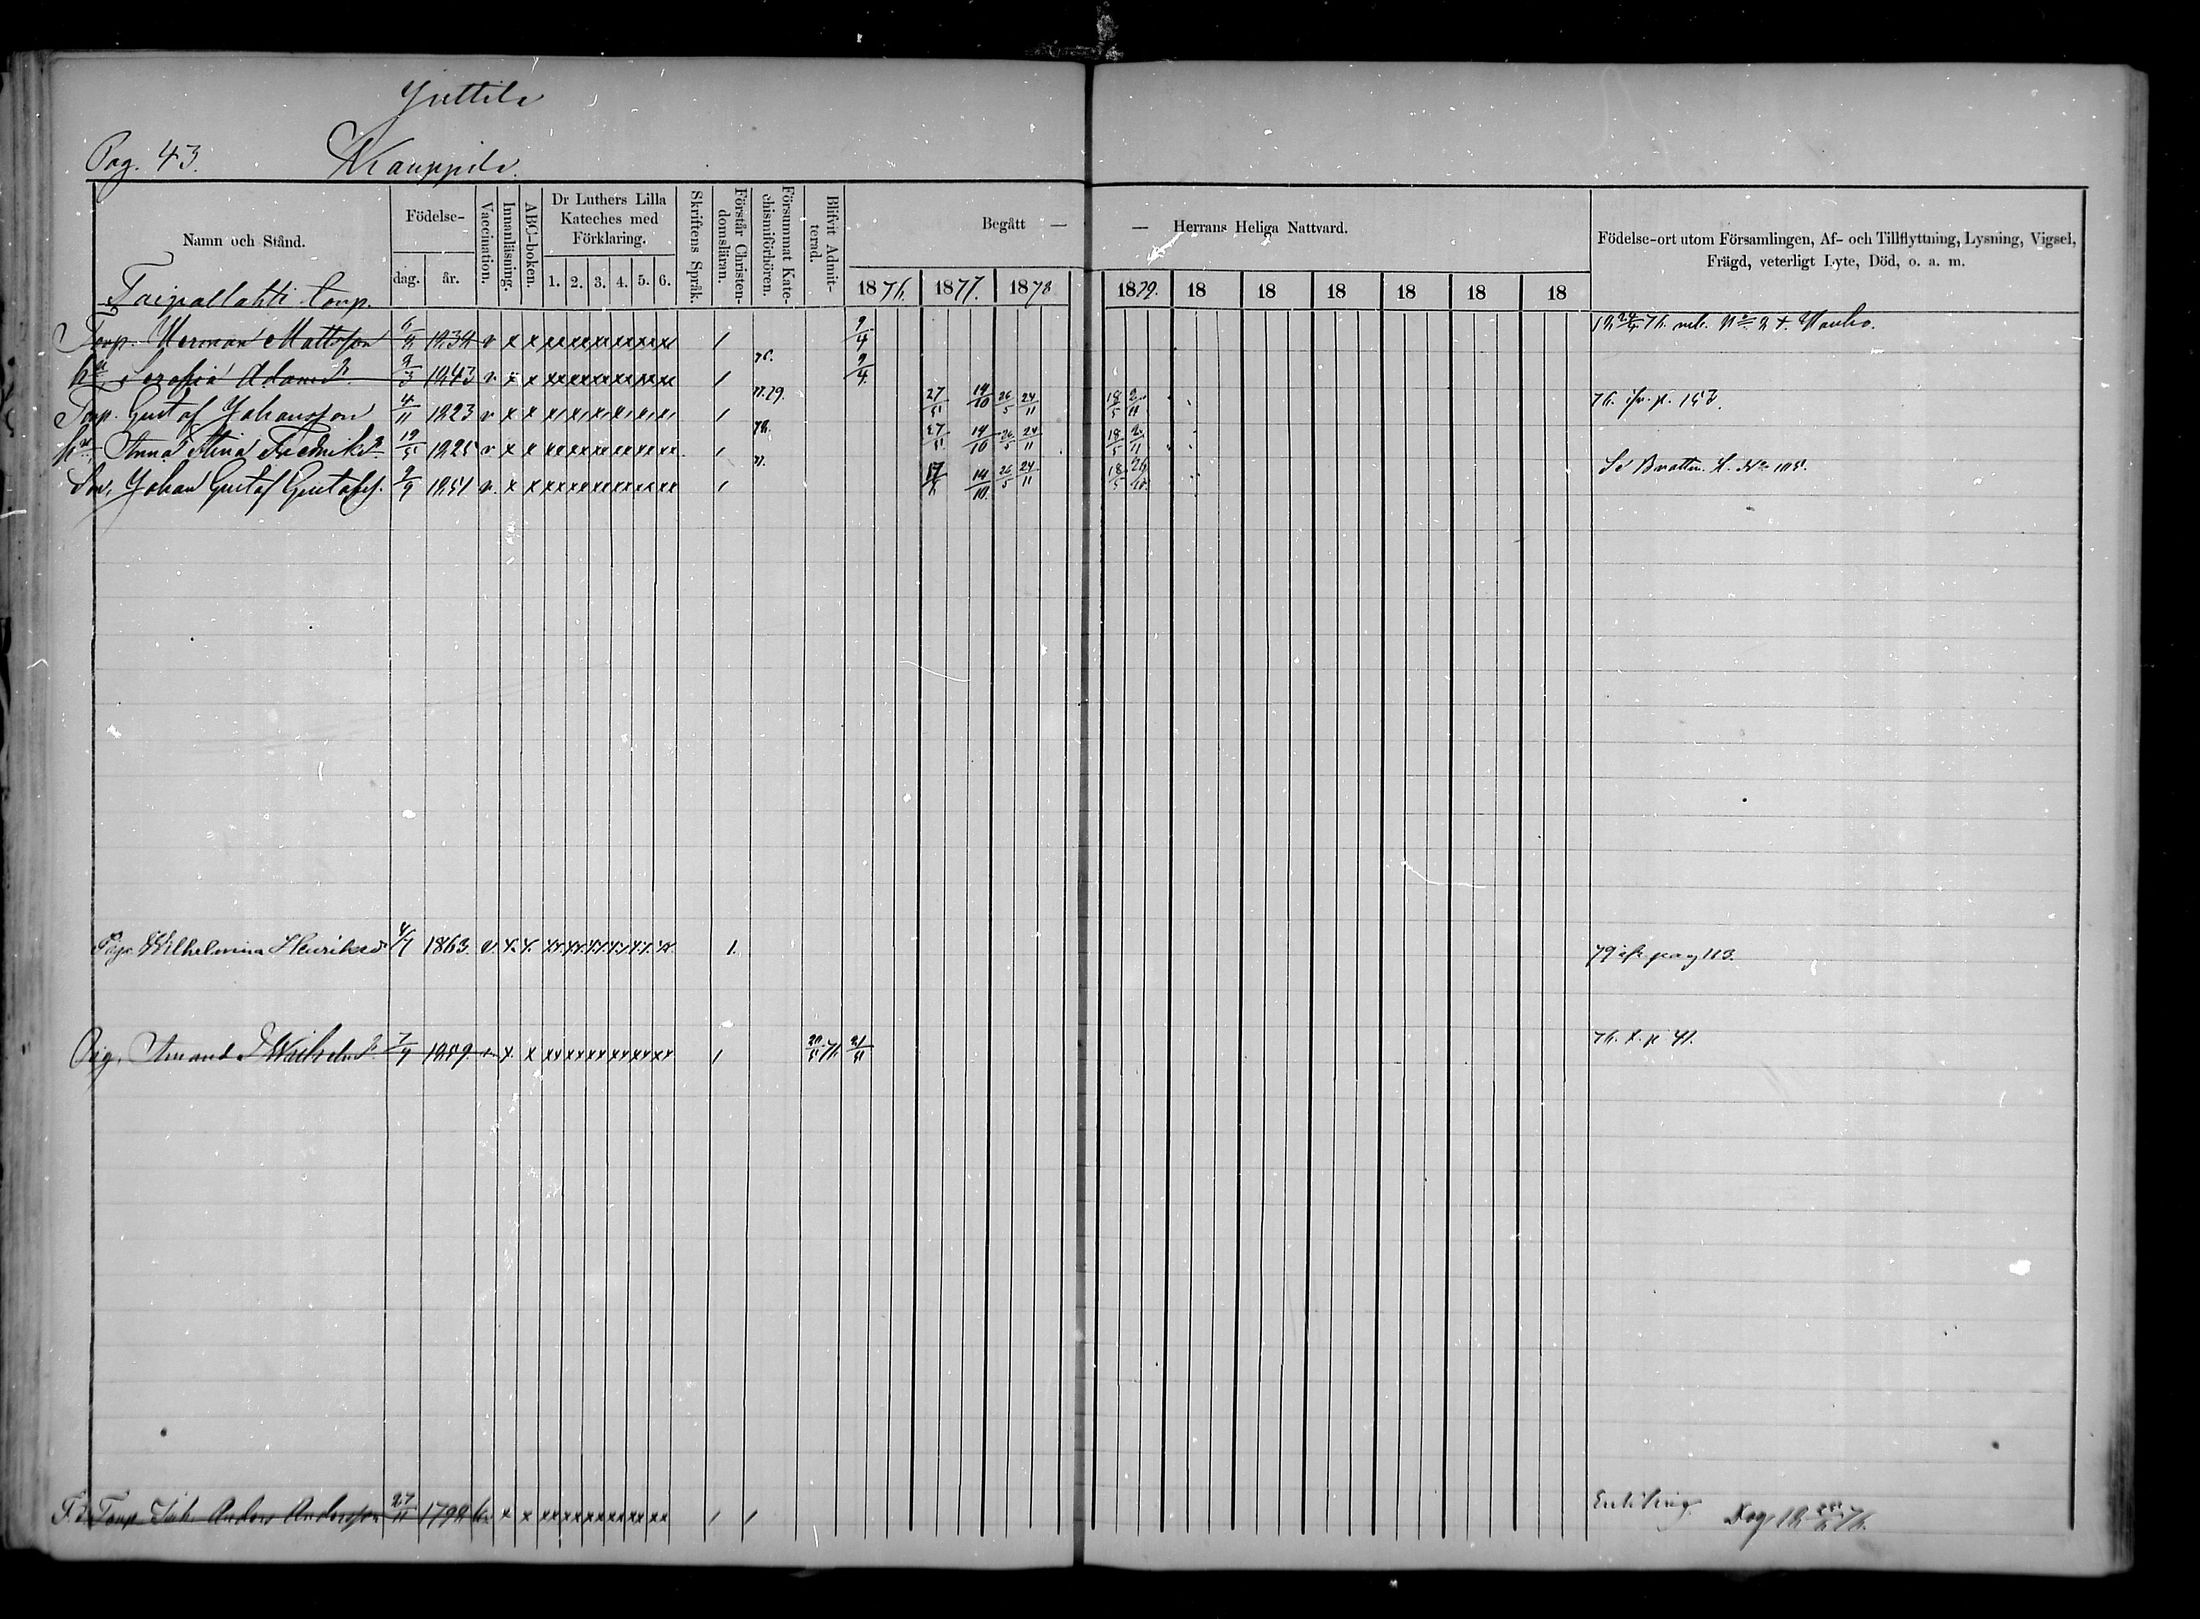 Juttila
Pag. 43. Kauppila.
Namn och Stånd.
Födelse-
dag. år.
Vaccination.
Innanläsning.
ABC-boken.
Dr Luthers Lilla Kateches med Förklaring.
1. 2. 3. 4. 5. 6.
Skriftens Språk.
Förstår Christen-domsläran.
Försummat Kate-chismiförhören.
Blifvit Admit-terad.
Begått — — Herrans Heliga Nattvard.
1876. 1877. 1878 1879. 18 18 18 18 18 18
Födelse-ort utom Församlingen, Af- och Tillflyttning, Lysning, Vigsel,
Frägd, veterligt Lyte, Död, o. a. m.
Taipallahti torp.
Torp. Herman Mattsson 1834 v x x xx xx xx xx xx xx / 9/4
hu Serafia Adamsdr 9/3 1843 v x x xx xx xx xx xx xx / 76. 9/4
Torp. Gustaf Johansson 4/11 1823 v x x xx xx xx xx xx xx / 77.79. 27/5 14/10 26/5 24/11 18/5 2/11 76. fr. p. 153.
hu Anna Stina Fredriksdr 19/5 1825 v x x xx xx xx xx xx xx / 78. 27/5 14/10 26/5 24/11 18/5 2/11
Son, Johan Gustaf Gustafss. 2/9 1851 v. x x xx xx xx xx xx xx / 77. 14/10. 26/5 24/11 18/5 26/10
Pig. Wilhelmina Henriksdr 4/7 1863. v. x. x. xx xx xx xx xx xx 1. 79 ifr pag 113.
Pig. Amanda Wilh 7/9 1859 v x. x xx xx xx xx xx xx / 20/5 76 21/5 76. t. p. 41.
F.d. Torp. Anders Andersson 27/11 1792 x x xx xx xx xx xx xx / / Enkling. Dog 18 76.